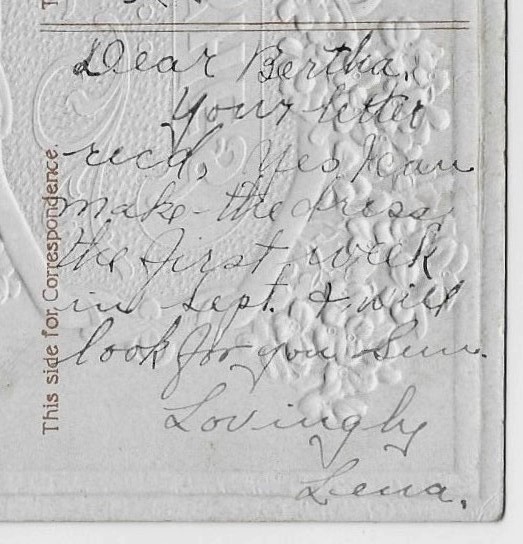 Dear Bertha,
Your letter
recd, Yes I can
make the dress
the first week
in Sept. & will
look for you Sun.
Lovingly
Lena.
This side for Correspondence.